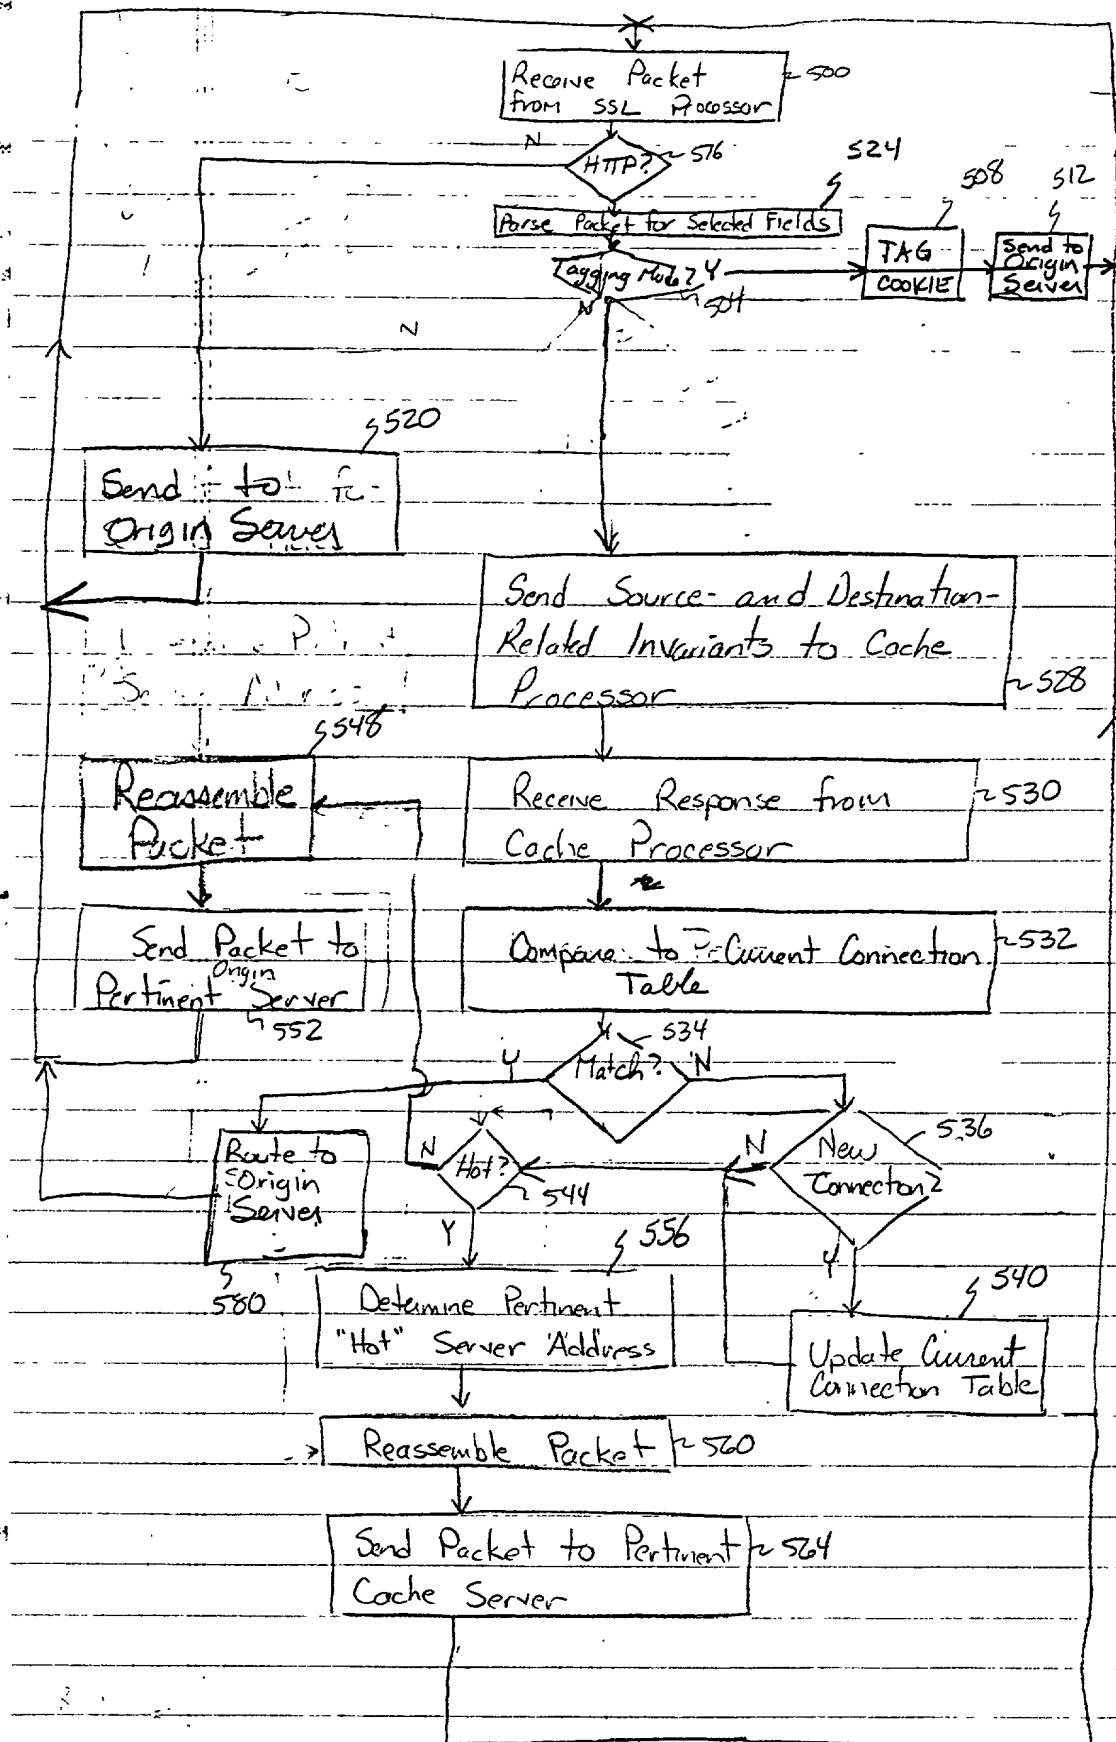 Receive Packet
from SSL Processor
500
N
HTTP?
516
524
Parse Packet for Selected Fields
508
512
Tagging Mode? Y
504
N
TAG
COOKIE
Send to
Origin
Server
N
520
Send to
Origin Server
Send Source- and Destination-
Related Invariants to Cache
Processor
528
548
Reassemble
Packet
Receive Response from
Cache Processor
530
Send Packet to
Origin
Pertinent Server
552
Compare to Current Connection
Table
532
534
Y
Match?
N
Route to
Origin
Server
580
N
Hot?
544
Y
N
New
Connection?
536
Y
556
Determine Pertinent
"Hot" Server Address
540
Update Current
Connection Table
Reassemble Packet
560
Send Packet to Pertinent
Cache Server
564